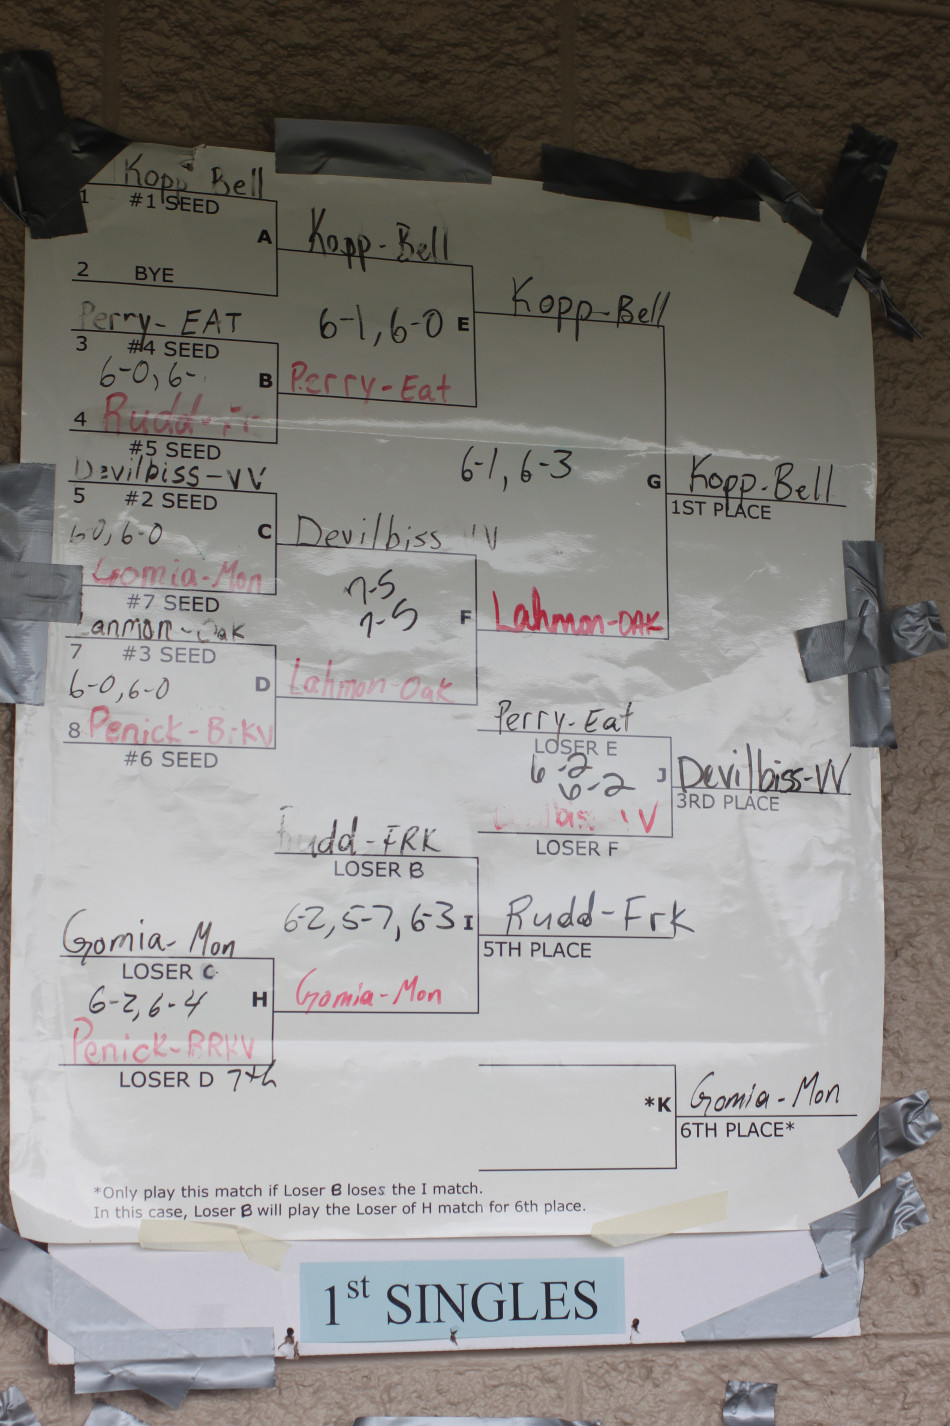 Kopp Bell
1 #1 SEED
A
Kopp-Bell
2 BYE
Perry-EAT
3 #4 SEED
6-1, 6-0 E
Kopp-Bell
6-0, 6-
B
Perry-Eat
4 Rudd-Fr
#5 SEED
Devilbiss-VV
5 #2 SEED
6-1, 6-3
G
Kopp-Bell
1ST PLACE
6-0, 6-0
C
Devilbiss VV
Gomia-Mon
#7 SEED
7-5
7-5
F
Lahmon-OAK
Lanmon-Oak
7 #3 SEED
6-0, 6-0
D
Lahmon-Oak
8 Penick-BrKV
#6 SEED
Perry-Eat
LOSER E
6-2
6-2
J
Devilbiss-VV
3RD PLACE
LOSER F
Rudd-FRK
LOSER B
6-2, 5-7, 6-3 I
Rudd-Frk
5TH PLACE
Gomia-Mon
LOSER C
6-2, 6-4
H
Gomia-Mon
Penick-BRKV
LOSER D 7th
*K
Gomia-Mon
6TH PLACE*
*Only play this match if Loser B loses the I match.
In this case, Loser B will play the Loser of H match for 6th place.
1st SINGLES